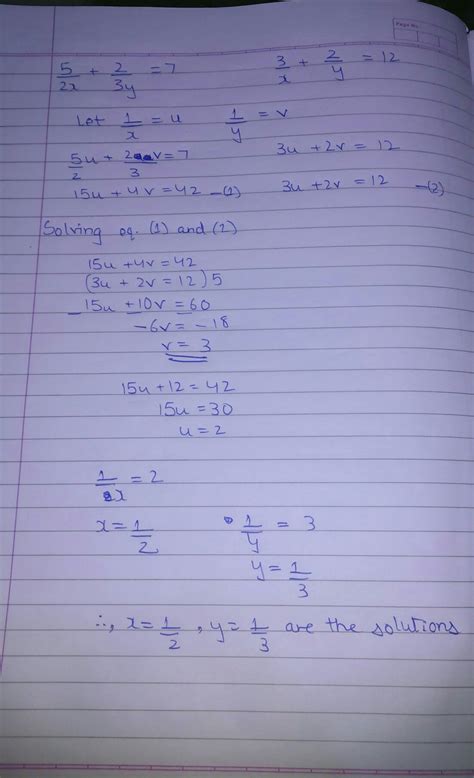 Page No.
5/2x + 2/3y = 7    3/x + 2/y = 12
Let 1/x = u    1/y = v
5/2 u + 2v/3 = 7    3u + 2v = 12
15u + 4v = 42 —(1)    3u + 2v = 12 —(2)
Solving eq. (1) and (2)
15u + 4v = 42
(3u + 2v = 12) 5
15u + 10v = 60
- - -
-6v = -18
v = 3
15u + 12 = 42
15u = 30
u = 2
1/x = 2
x = 1/2    1/y = 3
y = 1/3
∴, x = 1/2, y = 1/3 are the solutions